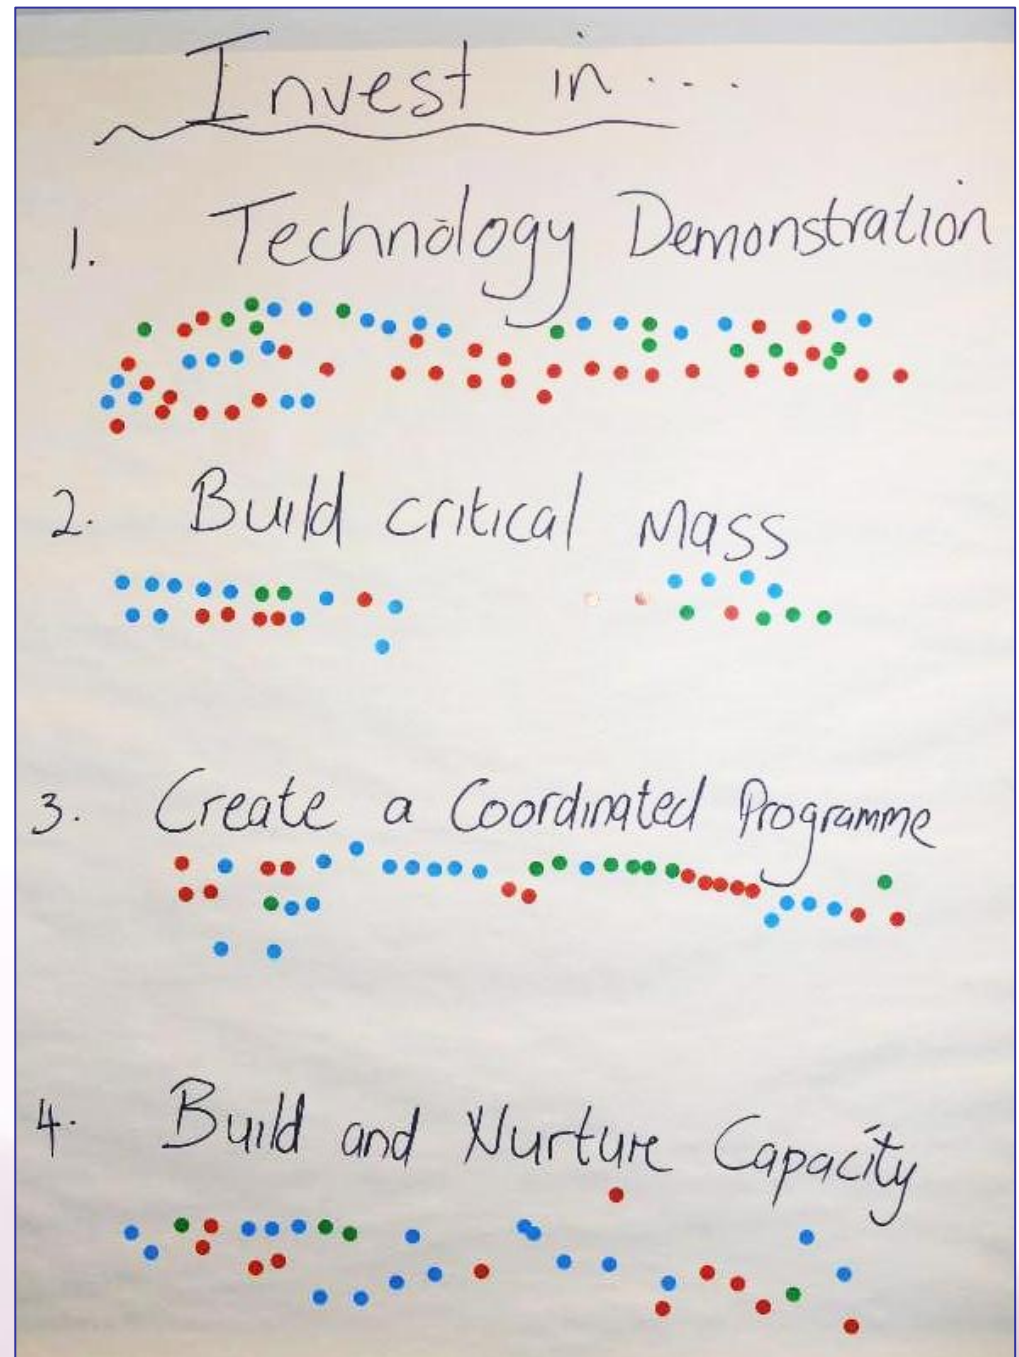 Invest in...
1. Technology Demonstration
2. Build critical Mass
3. Create a Coordinated Programme
4. Build and Nurture Capacity